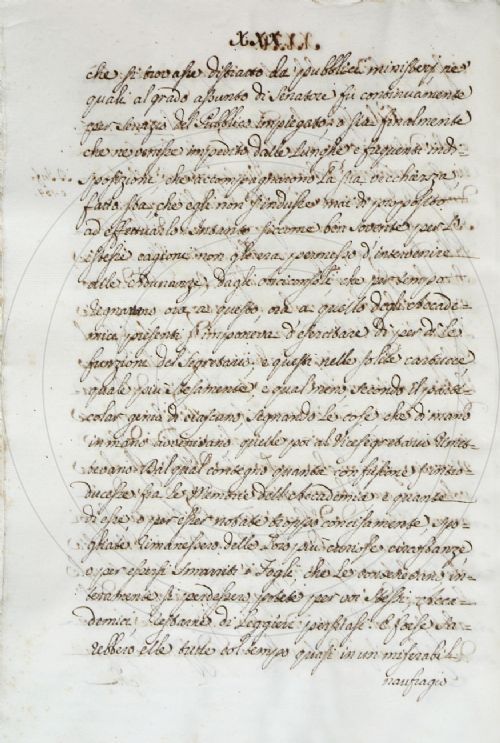 XXX
che si trovasse distratto da pubblici ministerj ne
quali al grado assunto di Senatore fu continuamente
per servizio del Pubblico impiegato; o sia finalmente
che ne venisse impedito dalle lunghe e frequenti indi-
sposizioni che accompagnarono la sua vecchiezza,
fatto sta, che egli non s'indusse mai di proposito
ad effettuarlo. Intanto siccome ben sovente per le
istesse cagioni non gli era permesso d'intervenire
alle Adunanze, dagli Arciconsoli che per tempo
regnarono ora a questo, ora a quello degli Accade-
mici presenti s'imponeva d'esercitare di per dì le
funzioni del Segretario, e questi nelle solite cartucce
quale più estesamente, e qual meno, secondo il parti-
colar genio di ciascuno, segnando le cose che di mano
in mano avvenivano, quelle poi al Vicesegretario
Dal qual contegno quanta confusione s'intro-
ducesse fra le Memorie dell'Accademia e quante
di esse o per esser notate troppo concisamente spo-
gliate rimanessero delle loro più circostanze
o per essersi smarriti i fogli, che le contenevano in-
teramente si perdessero, potete per voi stessi, Acca-
demici, di leggieri
rebbero elle tutte col tempo quasi in un miserabil
naufragio